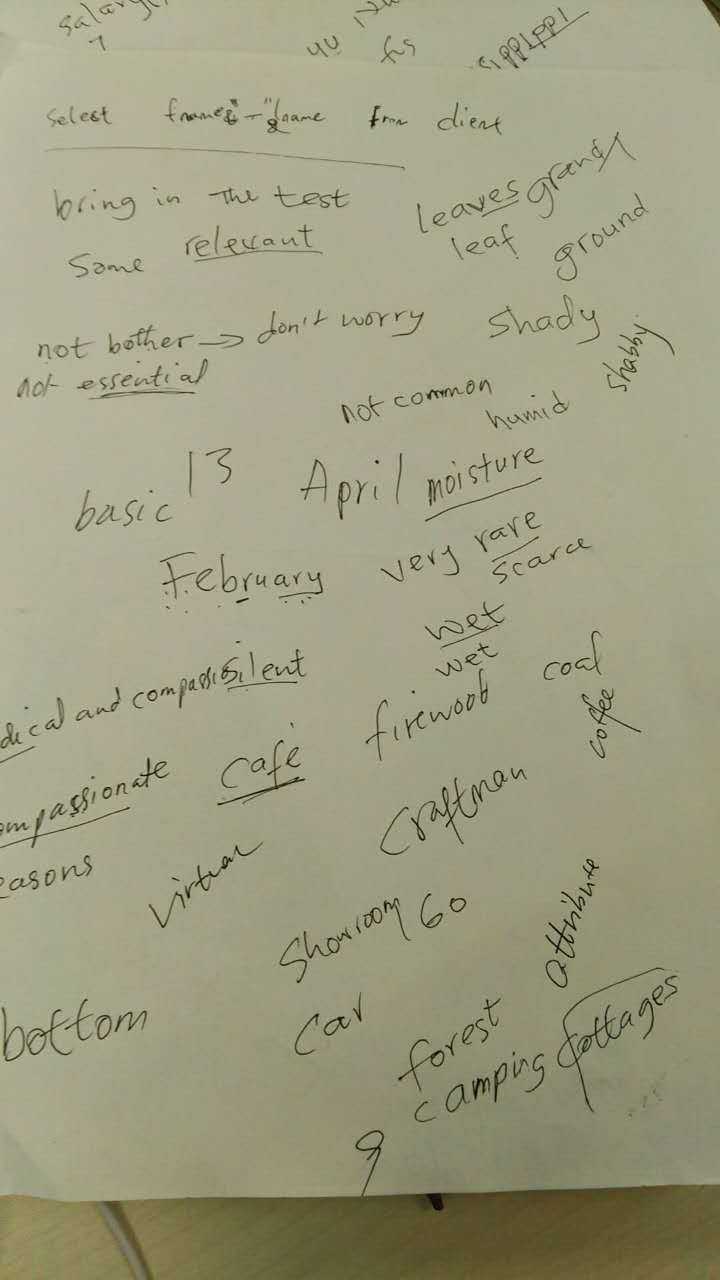 salary
fus
select fname&"-"&lname from client
bring in The test
leaves grand
leaf
some relevant
ground
not bother → don't worry
shady
not essential
shabby
not common
humid
basic 13 April moisture
February very rare
scarce
wet
wet
dical and compassio silent
coal
firewood
coffee
ompassionate café
Craftman
easons
virtual
Showroom 60
attribute
bottom
car
forest
camping cottages
9